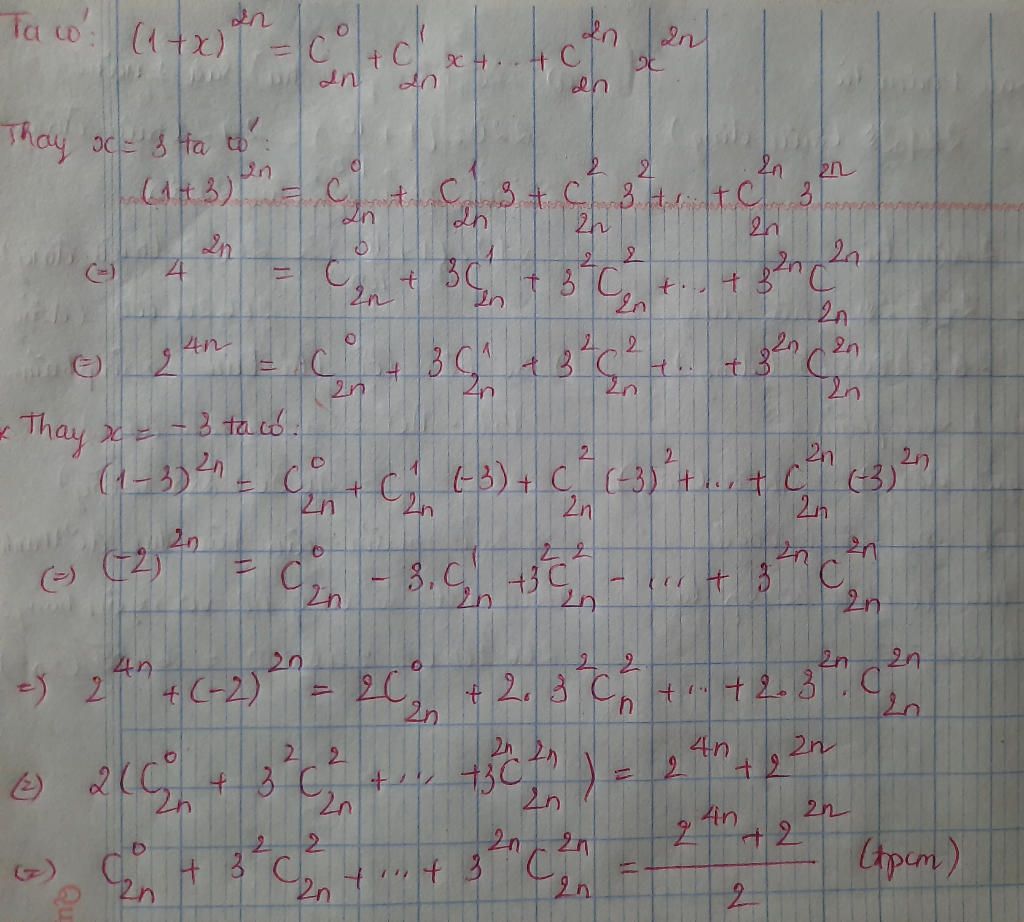 Ta có: (1+x)^{2n} = C_{2n}^{0} + C_{2n}^{1} x + ... + C_{2n}^{2n} x^{2n}
Thay x = 3 ta có:
(1+3)^{2n} = C_{2n}^{0} + C_{2n}^{1} 3 + C_{2n}^{2} 3^{2} + ... + C_{2n}^{2n} 3^{2n}
(=) 4^{2n} = C_{2n}^{0} + 3C_{2n}^{1} + 3^{2}C_{2n}^{2} + ... + 3^{2n}C_{2n}^{2n}
(=) 2^{4n} = C_{2n}^{0} + 3C_{2n}^{1} + 3^{2}C_{2n}^{2} + ... + 3^{2n}C_{2n}^{2n}
x Thay x = -3 ta có:
(1-3)^{2n} = C_{2n}^{0} + C_{2n}^{1} (-3) + C_{2n}^{2} (-3)^{2} + ... + C_{2n}^{2n} (-3)^{2n}
(=) (-2)^{2n} = C_{2n}^{0} - 3.C_{2n}^{1} + 3^{2}C_{2n}^{2} - ... + 3^{2n} C_{2n}^{2n}
=) 2^{4n} + (-2)^{2n} = 2C_{2n}^{0} + 2.3^{2}C_{n}^{2} + ... + 2.3^{2n}.C_{2n}^{2n}
(=) 2(C_{2n}^{0} + 3^{2}C_{2n}^{2} + ... + 3^{2n}C_{2n}^{2n}) = 2^{4n} + 2^{2n}
(=) C_{2n}^{0} + 3^{2}C_{2n}^{2} + ... + 3^{2n}C_{2n}^{2n} = \frac{2^{4n} + 2^{2n}}{2} (đpcm)